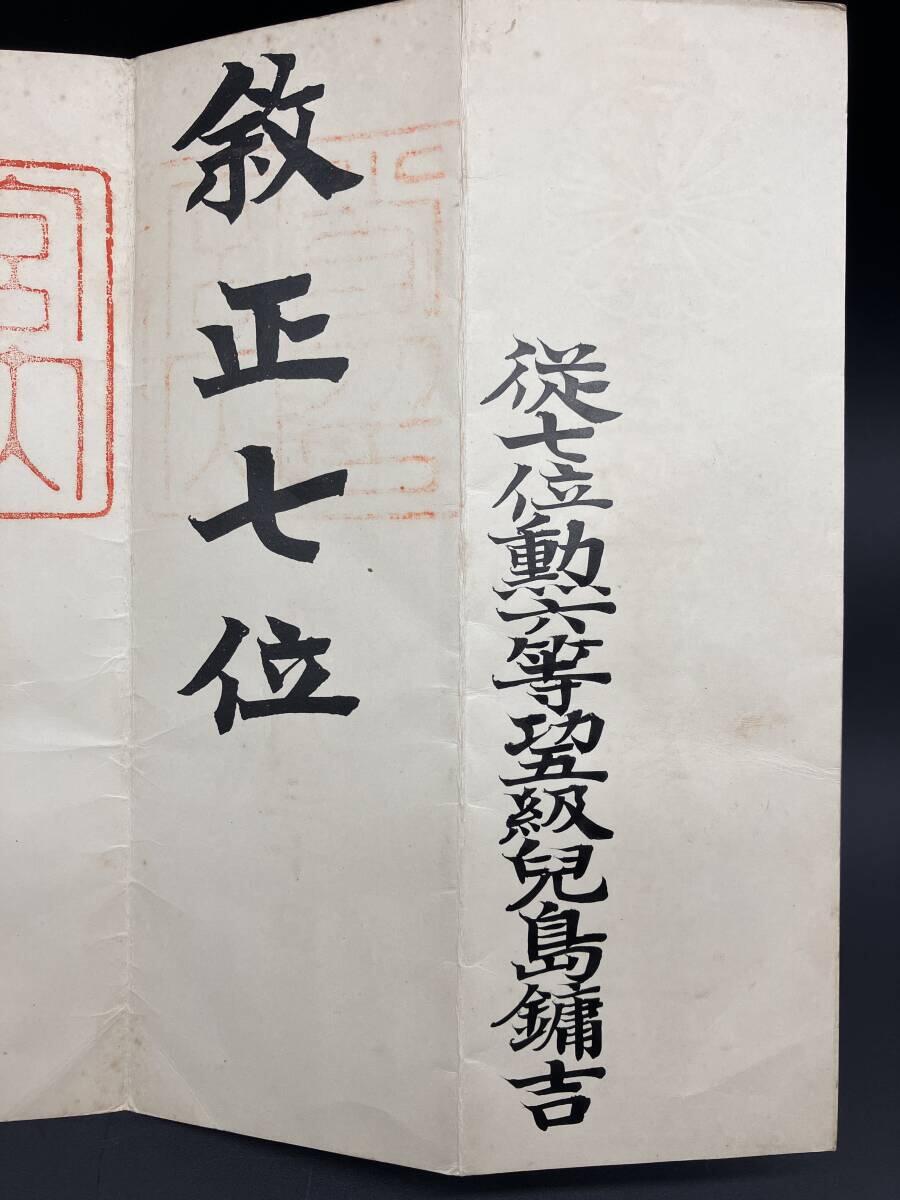 従七位勲六等功五級兒島鏞吉
敘正七位